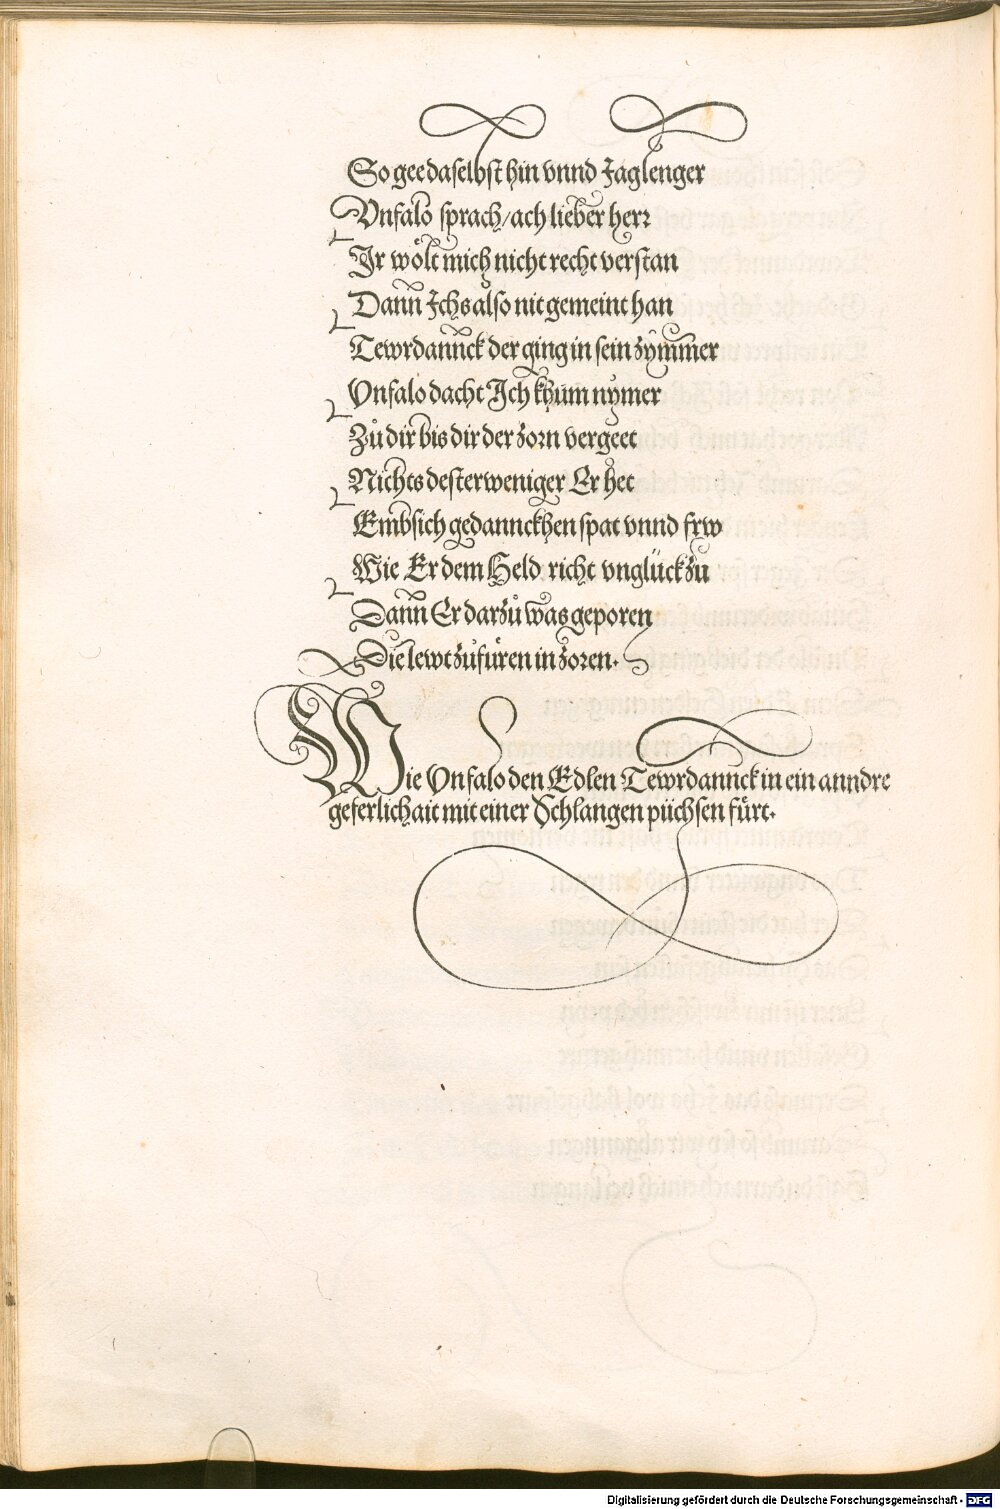 So gee daselbst hin vnnd Jag lenger
Vnfalo sprach/ach lieber herr
Ir wölt mich nicht recht verstan
Dann Ichs also nit gemeint han
Tewrdannck der ging in sein zymmer
Vnfalo dacht Ich khum nymer
Zů dir bis dir der zorn vergeet
Nichts dester weniger Er het
Embsich gedannckhen spat vnnd frw
Wie Er dem Held richt vnglück zů
Dann Er darzů was geporen
Die lewt zůfůren in zoren.
Wie Vnfalo den Edlen Tewrdannck in ein anndre
geferlichait mit einer Schlangen püchsen fürt.
Digitalisierung gefördert durch die Deutsche Forschungsgemeinschaft - DFG